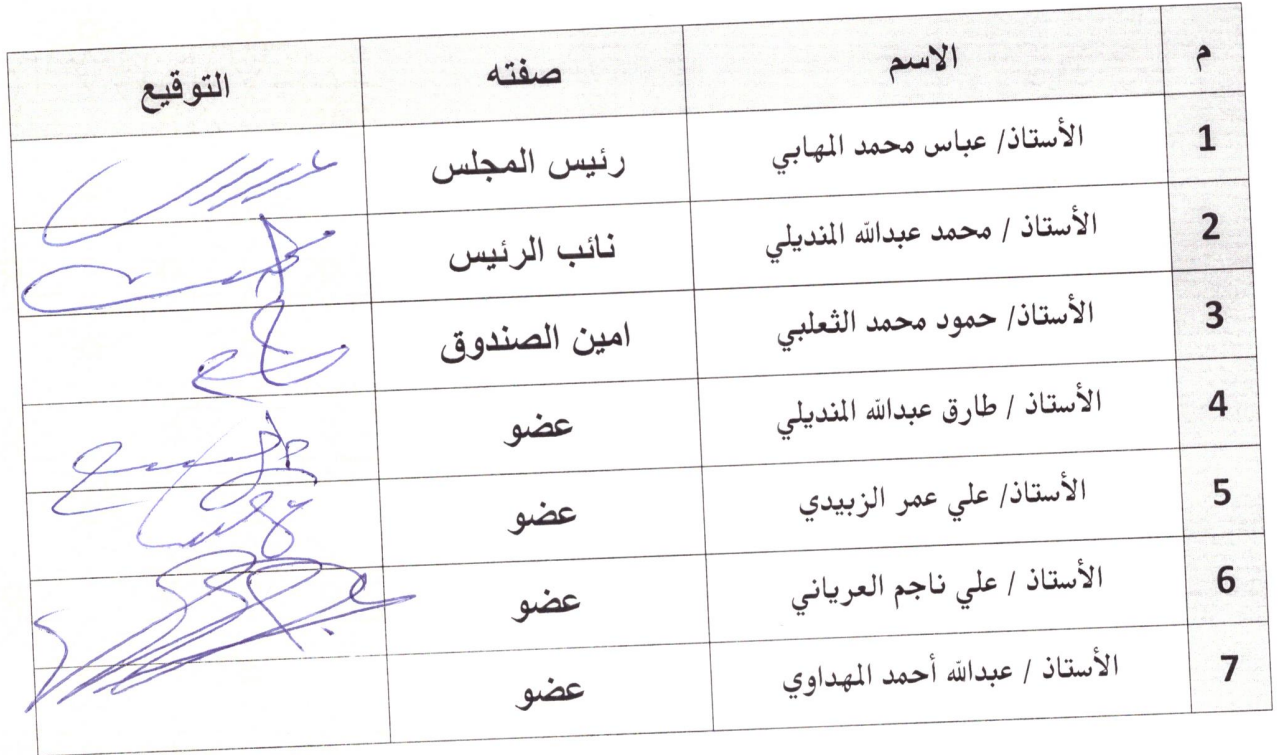 م الاسم صفته التوقيع
1 الأستاذ/ عباس محمد المهابي رئيس المجلس
2 الأستاذ / محمد عبدالله المنديلي نائب الرئيس
3 الأستاذ/ حمود محمد الثعلبي امين الصندوق
4 الأستاذ / طارق عبدالله المنديلي عضو
5 الأستاذ/ علي عمر الزبيدي عضو
6 الأستاذ / علي ناجم العرياني عضو
7 الأستاذ / عبدالله أحمد المهداوي عضو